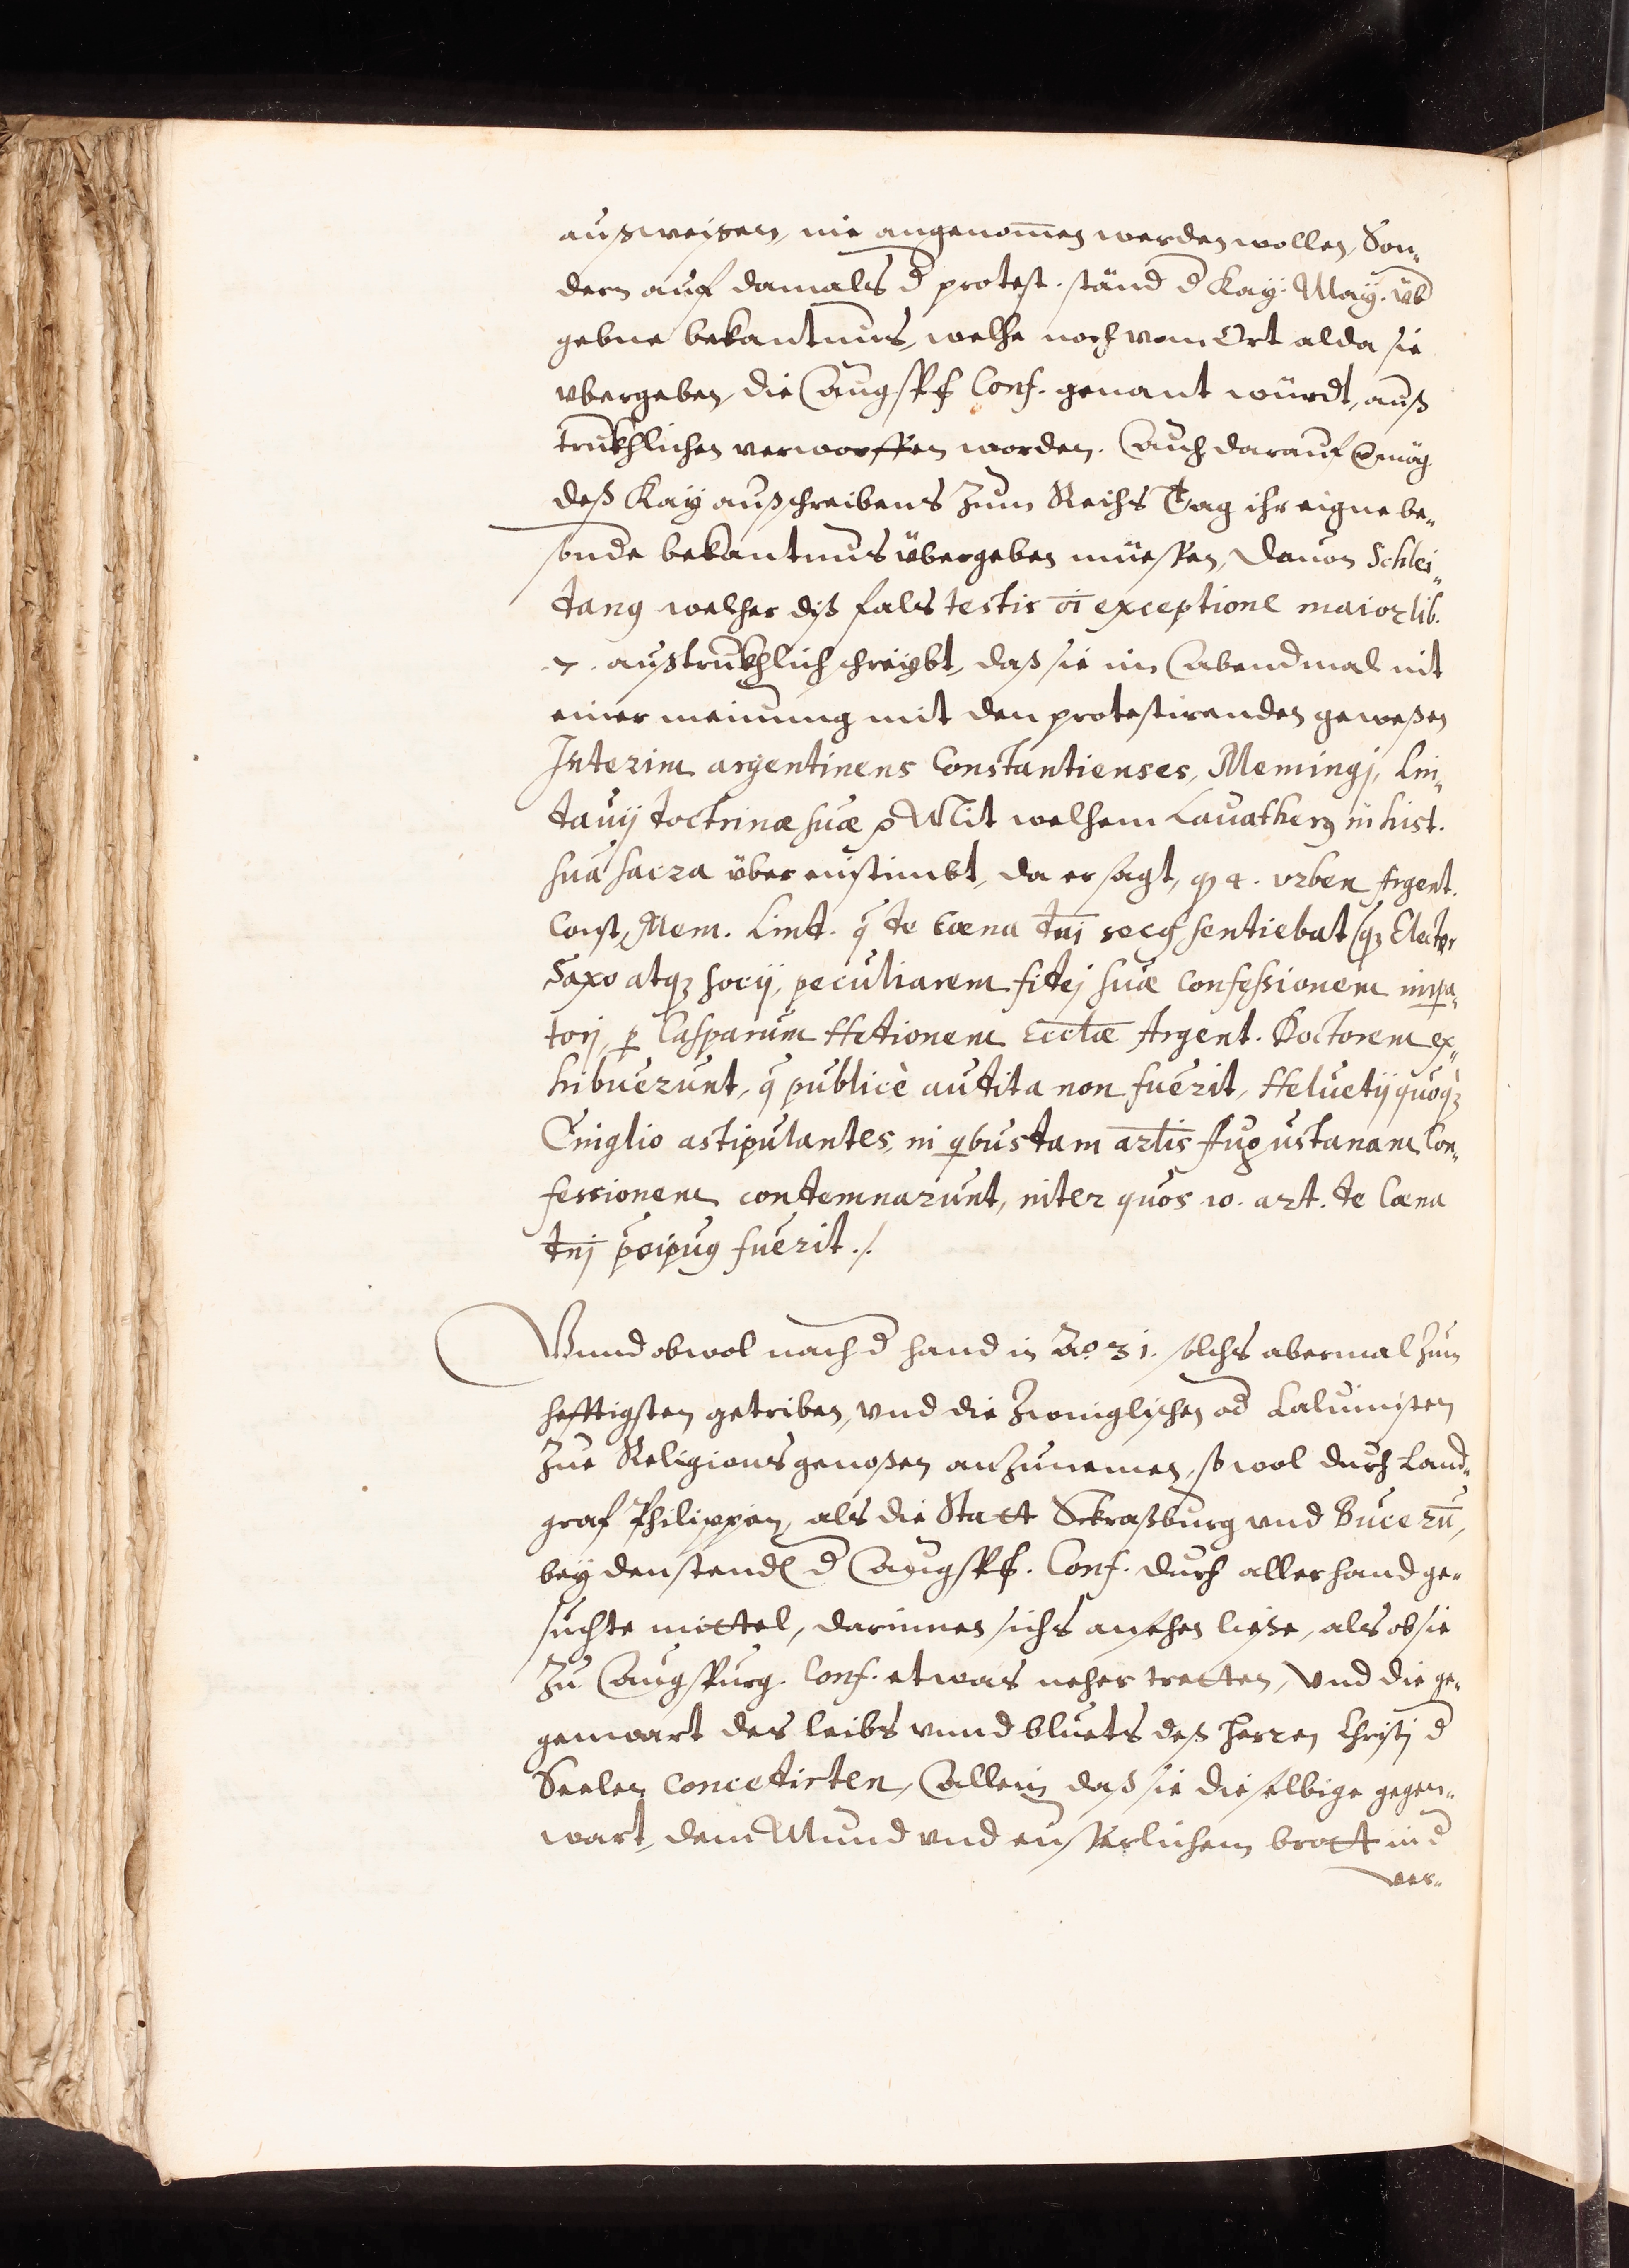 außweisen, nie angenom̄en werden wollen, Son„
dern auf damals d̄ protest. ständ d̄ Kay: May. üb
gebne bekantnus, welche noch vom Ort alda sie
vbergeben, die Augspf Conf. genant würdt, auß
trukhlichen verworffen worden. Auch darauf vmög
deß Kay außschreibens zum Reichs Tag ihr eigne be„
sonde bekantnus übergeben müessen, dauon Schlei„
dang welcher diß fals testis oī exceptione maior lib.
.7. außtrukhlich schreybt, daß sie im Abendmal nit
einer meinung mit den protestirenden geweßen
Interim argentinens Constantienses, Memingj, Lin„
dauij doctrinæ suæ p Mit welchem Lauatherg in hist.
sua sacra über einstimbt, da er sagt, qz 4. vrben Argent.
Const, Mem. Lind. q̄ de cœna dn̄j secg sentiebat (qz Elector
Saxo atqz socij, peculiarem fidej suæ confessionem impa„
torj, p Casparum Hedionem Eccl̄æ Argent. Doctorem ex„
hibuerunt, q̄ publicè audita non fuerit, Heluetij quoqz
Cniglio astipulantes, in qbusdam artl̄is Augustanam Con„
fessionem condemnarunt, inter quos 10. art. de Cœna
dn̄j p̄cipug fuerit ./.
Vnnd obwol nach d̄ hand in Aō 31. solchs abermal zum
hefftigsten getriben, vnd die Zwinglischen od̄ Caluinisten
zue Religionsgenoßen anzunemen, so wol durch Land„
graf Philippen, als die Statt Straßburg vnd Bucerū,
bey den stend d̄ Augspf. Conf. durch allerhand ge„
suchte mittel, darinnen sichs ansehen ließe, als ob sie
zu Augspurg. Conf. etwas neher tretten, vnd die ge„
genwart des leibs vnnd bluets deß Herren Christj d̄
Seelen concedirten, Allein daß sie dieselbige gegen„
wart, dem Mund vnd eusserlichem brott in d̄
ver„